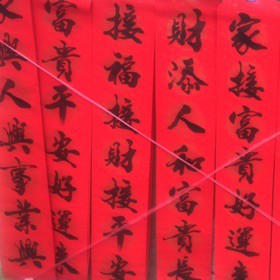 家接富貴好運來
財添人和富貴長
接福接財接平安
富貴平安好運來
興人興事業興